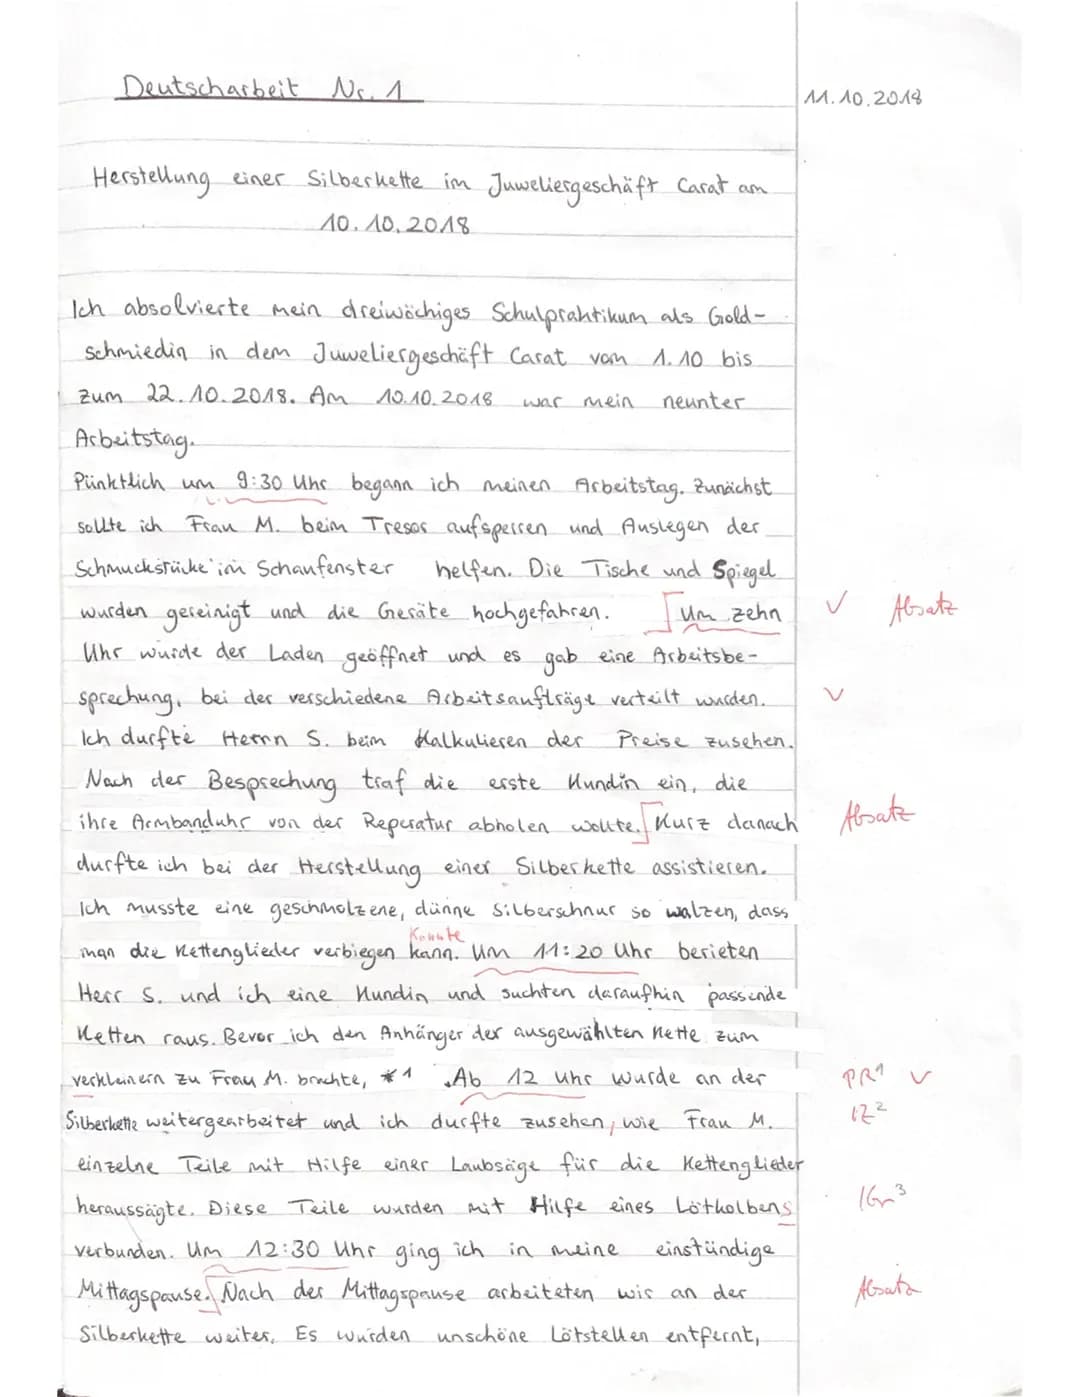 Deutscharbeit Nr. 1
11.10.2018
Herstellung einer Silberkette im Juweliergeschäft Carat am
10.10.2018
Ich absolvierte mein dreiwöchiges Schulpraktikum als Gold-
schmiedin in dem Juweliergeschäft Carat vom 1.10 bis
zum 22.10.2018. Am 10.10.2018 war mein neunter
Arbeitstag.
Pünktlich um 9:30 Uhr begann ich meinen Arbeitstag. Zunächst
sollte ich Frau M. beim Tresor aufsperren und Auslegen der
Schmuckstücke im Schaufenster helfen. Die Tische und Spiegel
wurden gereinigt und die Geräte hochgefahren. [Um zehn √ Absatz
Uhr wurde der Laden geöffnet und es gab eine Arbeitsbe-
sprechung, bei der verschiedene Arbeitsaufträge verteilt wurden. √
Ich durfte Herrn S. beim Kalkulieren der Preise zusehen.
Nach der Besprechung traf die erste Kundin ein, die
ihre Armbanduhr von der Reperatur abholen wollte. [Kurz danach Absatz
durfte ich bei der Herstellung einer Silberkette assistieren.
Ich musste eine geschmolzene, dünne Silberschnur so walzen, dass
konnte
man die Kettenglieder verbiegen kann. Um 11:20 Uhr berieten
Herr S. und ich eine Kundin und suchten daraufhin passende
Ketten raus. Bevor ich den Anhänger der ausgewählten Kette zum
verkleinern zu Frau M. brachte, *1 . Ab 12 Uhr wurde an der PR1 √
Silberkette weitergearbeitet und ich durfte zusehen, wie Frau M. 1Z2
einzelne Teile mit Hilfe einer Laubsäge für die Kettenglieder
heraussägte. Diese Teile wurden mit Hilfe eines Lötkolbens 1Gr3
verbunden. Um 12:30 Uhr ging ich in meine einstündige
Mittagspause. [Nach der Mittagspause arbeiteten wir an der Absatz
Silberkette weiter. Es wurden unschöne Lötstellen entfernt,